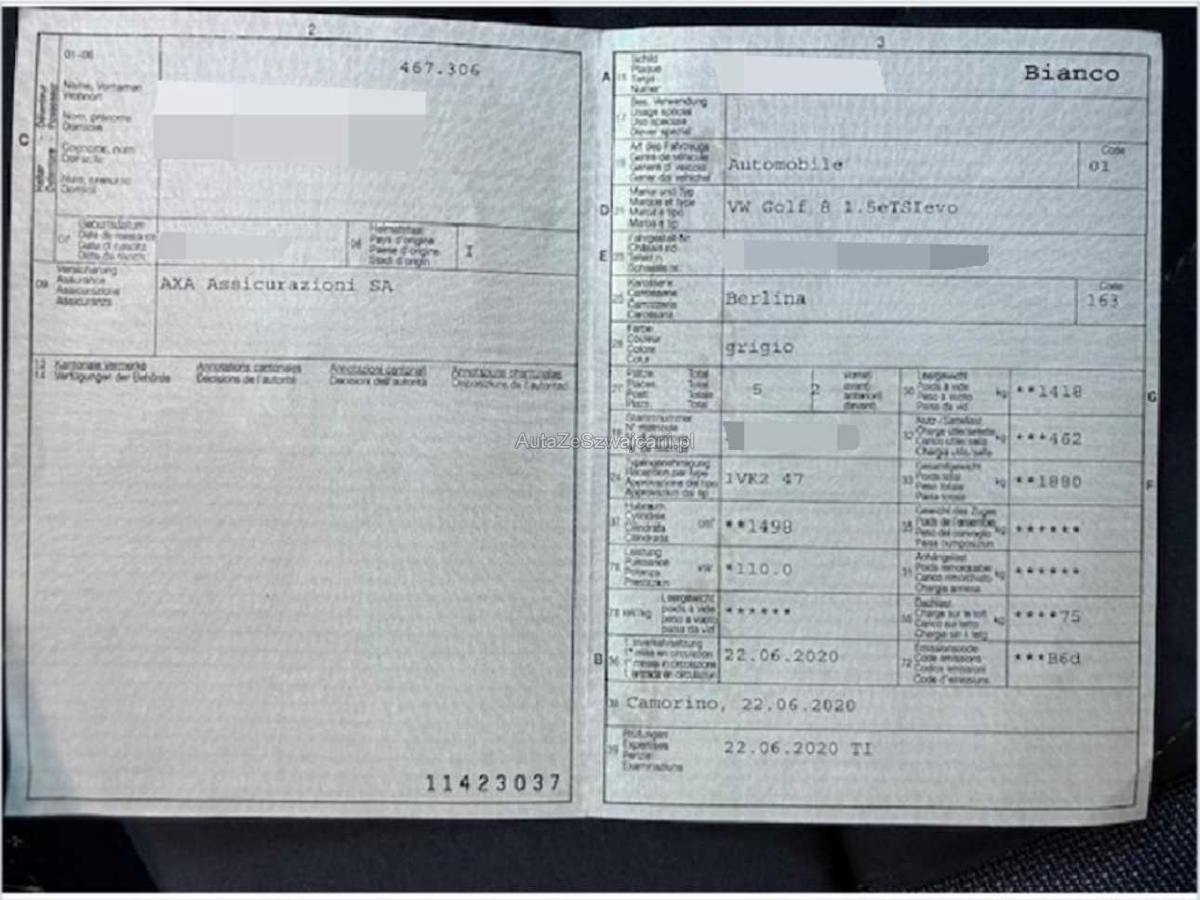 2
01-06
467.306
Name, Vornamen
Wohnort
Nom, prénoms
Domicile
Cognome, nomi
Domicilio
C
07
Geburtsdatum
Data di nascita
Pays d'origine
I
09
Versicherung
Assurance
Assicurazione
Assicuranza
AXA Assicurazioni SA
13
14
Kantonale Vermerke
Verfügungen der Behörde
Annotations cantonales
Décisions de l'autorité
Annotazioni cantonali
Decisioni dell'autorità
Annotaziuns chantunalas
Disposiziuns da l'autoritad
11423037
3
A
15
Schild
Plaque
Targa
Numer
Bianco
17
Bes. Verwendung
Usage spécial
Uso speciale
Diever spezial
Art des Fahrzeugs
Genre de véhicule
Genere di veicolo
Gener da vehichel
Automobile
Code
01
D
21
Marke und Typ
Marque et type
Marca e tipo
Marca e tip
VW Golf 8 1.5eTSIevo
E
23
Fahrgestell-Nr.
Châssis no
Telaio n.
Schassis nr.
25
Karosserie
Carrosserie
Carrozzeria
Carossaria
Berlina
Code
163
26
Farbe
Couleur
Colore
Colur
grigio
27
Plätze Total
Places Total
Posti Totale
Plazs Total
5
2
vorne
avant
anteriori
davant
30
Leergewicht
Poids à vide
Peso a vuoto
Paisa da vid
kg
**1418
G
18
Stammnummer
N° matricule
32
Nutz-/Sattellast
Charge utile/sellette
Carico utile/sella
Chargia utila/sella
kg
***462
AutaZeSzwajcarii.pl
24
Typengenehmigung
Réception par type
Approvazione del tipo
Approvaziun dal tip
1VK2 47
33
Gesamtgewicht
Poids total
Peso totale
Paisa totala
kg
**1880
F
37
Hubraum
Cylindrée
Cilindrata
Cilindrada
cm³
**1498
35
Gewicht des Zuges
Poids de l'ensemble
Peso del convoglio
Paisa cumposiziun
kg
******
76
Leistung
Puissance
Potenza
Prestaziun
kW
*110.0
31
Anhängelast
Poids remorquable
Carico rimorchiato
Chargia annexa
kg
******
78
kW/kg
Leergewicht
poids à vide
peso a vuoto
paisa da vid
******
55
Dachlast
Charge sur le toit
Carico sul tetto
Chargia sin il tetg
kg
****75
B
36
1. Inverkehrsetzung
1re mise en circulation
1a messa in circolazione
1. entrada en circulaziun
22.06.2020
72
Emissionscode
Code émissions
Codice emissioni
Code d'emissiuns
***B6d
38
Camorino, 22.06.2020
39
Prüfungen
Expertises
Perizie
Examinaziuns
22.06.2020 TI